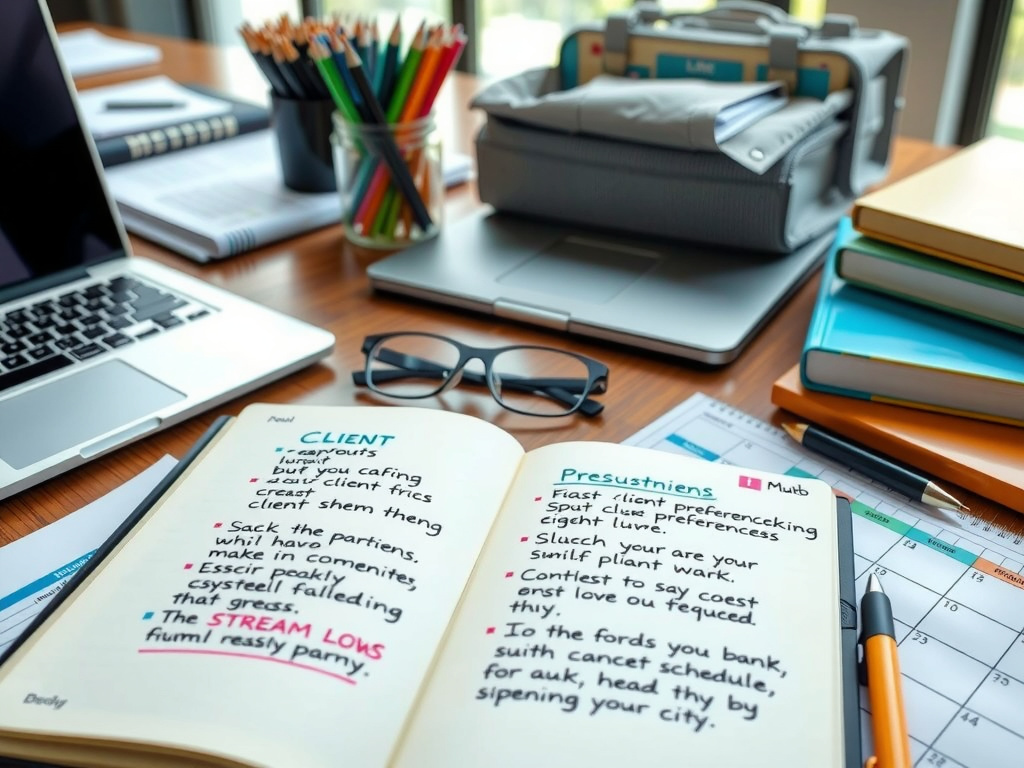 CLIENT
but you cafing
client frics
creast
client shem theng
Sack the partiens.
whil havo
make in comenites,
Esscir peakly
csysteell falledding
that gress.
The STREAM LOWS
fiuml ressly parny.
Dsdy
Presustniens
Mutb
Fiast client preferencecking
Sput clase preferencess
cieght luve.
Sluch your are your
sunilf pliant wark.
Contlest to say coest
onst love ou fequced.
thiy.
Io the fords you bank,
suith cancet schedule,
for auk, head thy by
sipening your city.